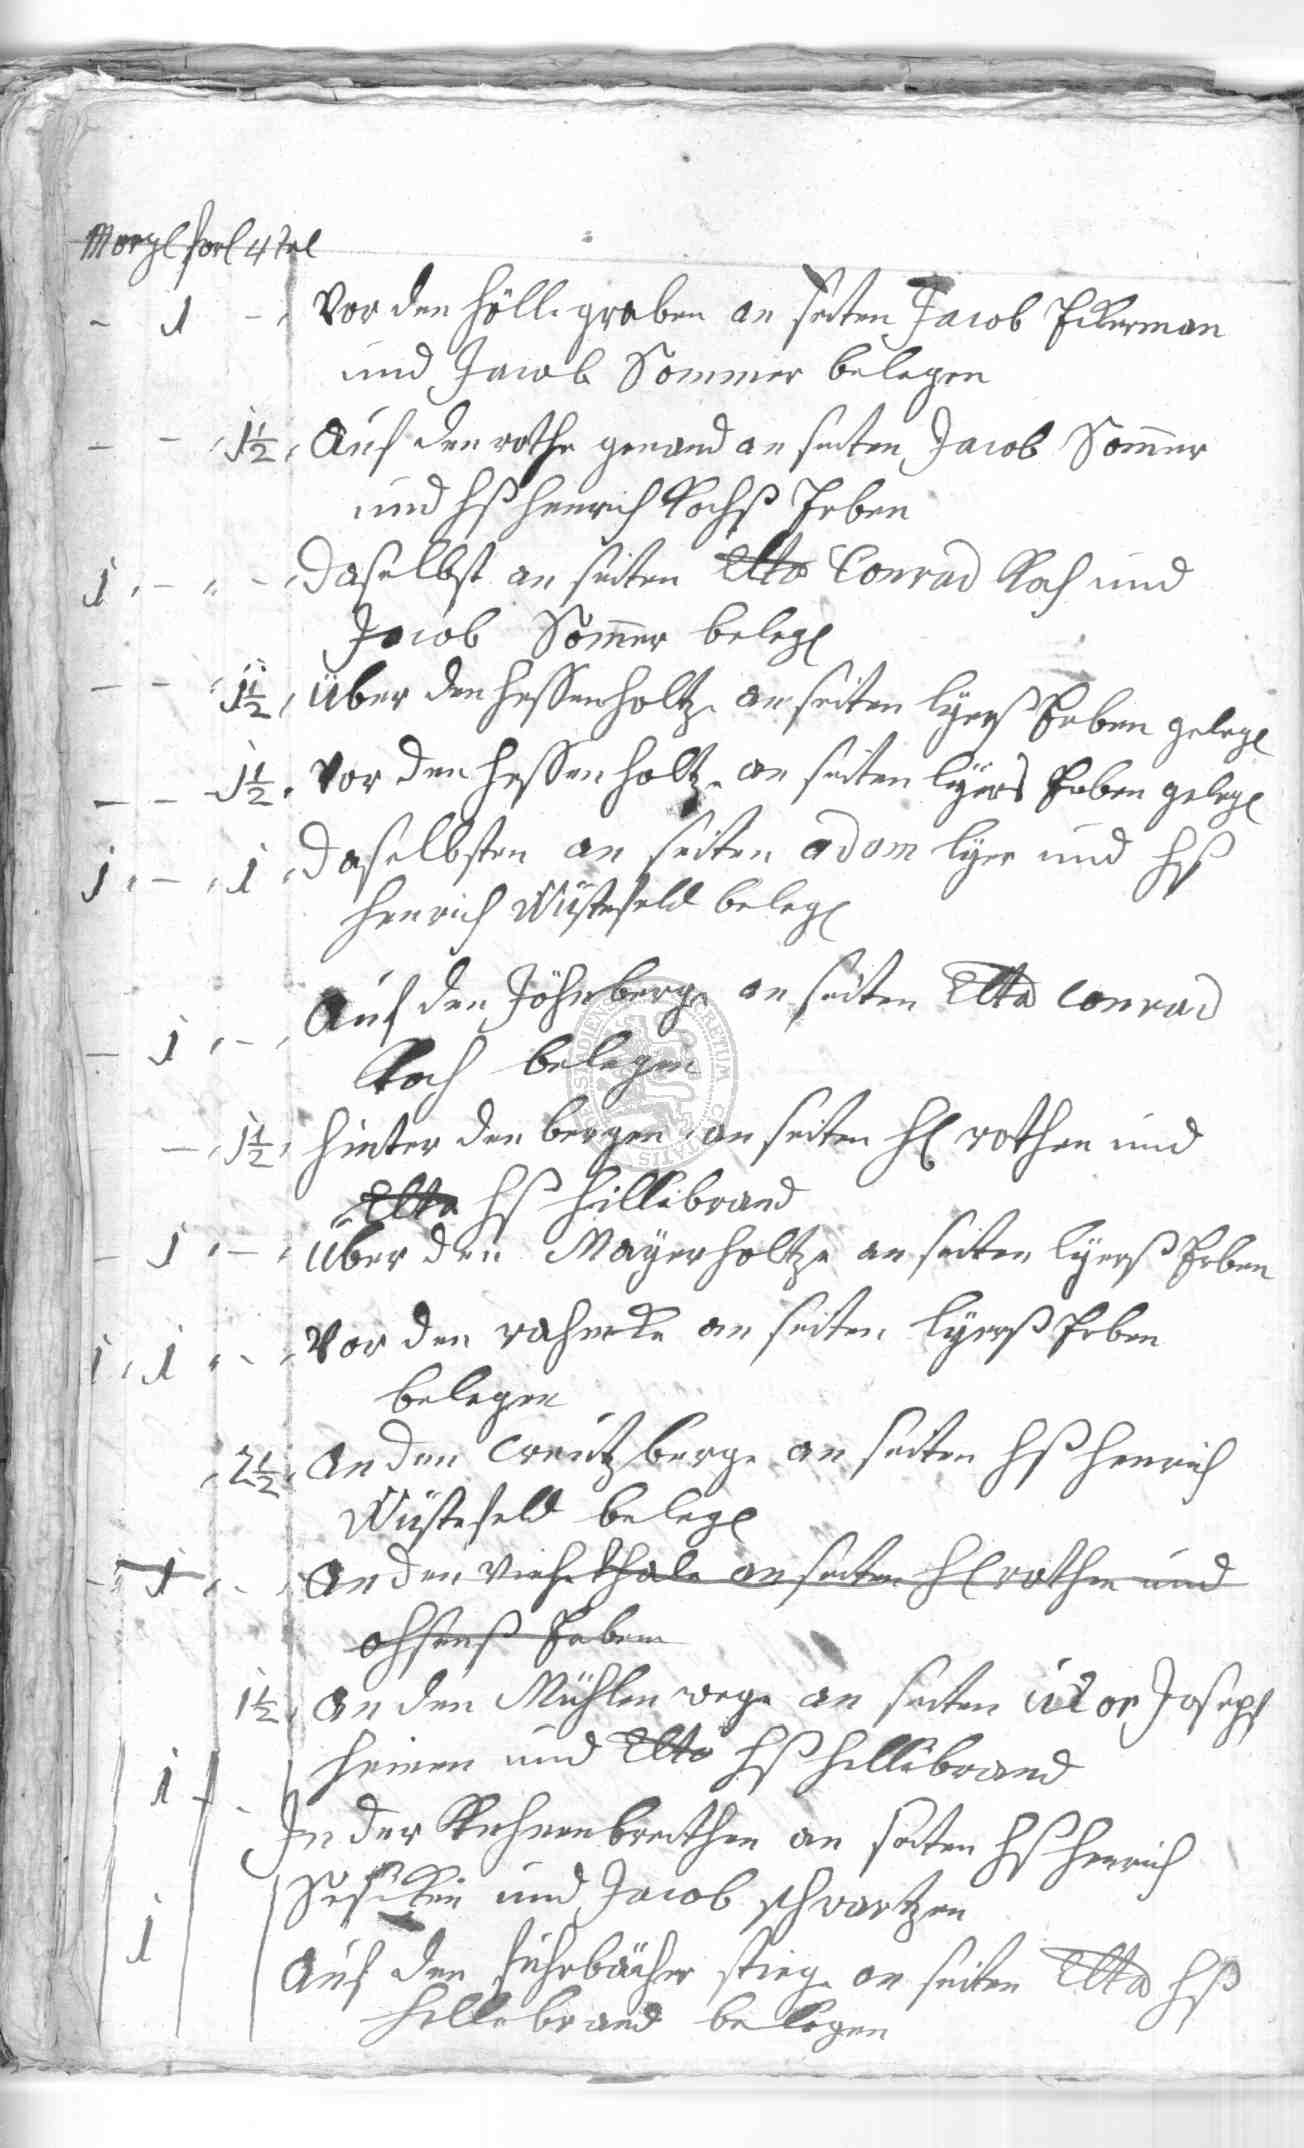 Morgl forl 4tel
- 1 - Vor den hölle graben an seiten Jacob Eckerman
und Jacob Sommer belegen
- - 1½ Auf den rothe genand an seiten Jacob Som̄er
und Hß Henrich Kochß Erben
1 - - Daselbst an seiten Elto Conrad Koch und
Jacob Som̄er belegl
- - 1½ über den hessenholtze an seiten lÿerß Erben gelegl
- - 1½ Vor den hessenholtze an seiten lÿers Erben gelegl
1 - 1 Daselbsten an seiten adam lÿer und Hß
Henrich Wüstefeld belegl
- 1 - Auf den berge an seiten Elto Conrad
Koch belegen
- 1½ hinter den bergen an seiten Hl rothen und
Elto Hß hillebrand
- 1 - über den Maÿerholtze an seiten lÿerß Erben
1 1 - Vor den an seiten lÿerß Erben
belegen
2½ An den Creutzberge an seiten Hß Henrich
Wüstefeld belegl
- 1 - An den Viehethale an seiten Hl rothen und
Erben
1½ An den Mühlenwege an seiten Joseph
heinen und Elto Hß hillebrand
1 - - In der breithen an seiten Hß Henrich
und Jacob schwartzen
1 Auf den fuhrbächer stiege an seiten Elto Hß
hillebrand belegen